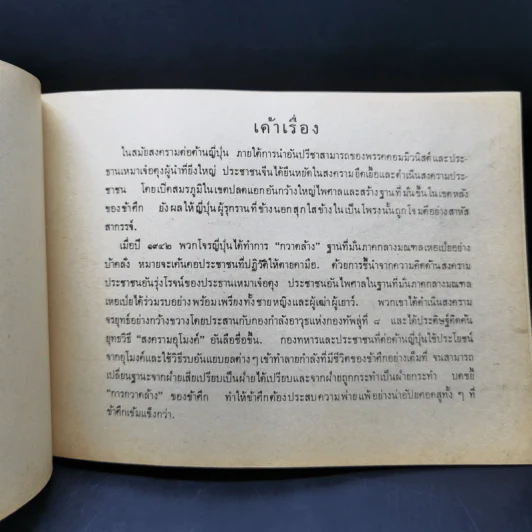 เค้าเรื่อง
ในสมัยสงครามต่อต้านญี่ปุ่น ภายใต้การนำอันปรีชาสามารถของพรรคคอมมิวนิสต์และประ-
ธานเหมาเจ๋อตุงผู้นำที่ยิ่งใหญ่ ประชาชนจีนได้ยืนหยัดในสงครามยืดเยื้อและดำเนินสงครามประ-
ชาชน โดยเปิดสมรภูมิในเขตปลดแอกอันกว้างใหญ่ไพศาลและสร้างฐานที่มั่นขึ้นในเขตหลัง
ของข้าศึก ยังผลให้ญี่ปุ่นผู้รุกรานที่ข้างนอกสุกใสข้างในเป็นโพรงนั้นถูกโจมตีอย่างสาหัส
สากรรจ์.
เมื่อปี ๑๙๔๒ พวกโจรญี่ปุ่นได้ทำการ "กวาดล้าง" ฐานที่มั่นภาคกลางมณฑลเหอเป่ยอย่าง
บ้าคลั่ง หมายจะเค้นคอประชาชนที่ปฏิวัติให้ตายคามือ. ด้วยการชี้นำจากความคิดด้านสงคราม
ประชาชนอันรุ่งโรจน์ของประธานเหมาเจ๋อตุง ประชาชนอันไพศาลในฐานที่มั่นภาคกลางมณฑล
เหอเป่ยได้ร่วมรบอย่างพร้อมเพรียงทั้งชายหญิงและผู้เฒ่าผู้เยาว์. พวกเขาได้ดำเนินสงคราม
จรยุทธ์อย่างกว้างขวางโดยประสานกับกองกำลังอาวุธแห่งกองทัพลู่ที่ ๘ และได้ประดิษฐ์คิดค้น
ยุทธวิธี "สงครามอุโมงค์" อันลือชื่อขึ้น. กองทหารและประชาชนที่ต่อต้านญี่ปุ่นใช้ประโยชน์
จากอุโมงค์และใช้วิธีรบอันแยบยลต่างๆ เข้าทำลายกำลังที่มีชีวิตของข้าศึกอย่างเต็มที่ จนสามารถ
เปลี่ยนฐานะจากฝ่ายเสียเปรียบเป็นฝ่ายได้เปรียบและจากฝ่ายถูกกระทำเป็นฝ่ายกระทำ บดขยี้
"การกวาดล้าง" ของข้าศึก ทำให้ข้าศึกต้องประสบความพ่ายแพ้อย่างน่าอัปยศอดสูทั้ง ๆ ที่
ข้าศึกเข้มแข็งกว่า.